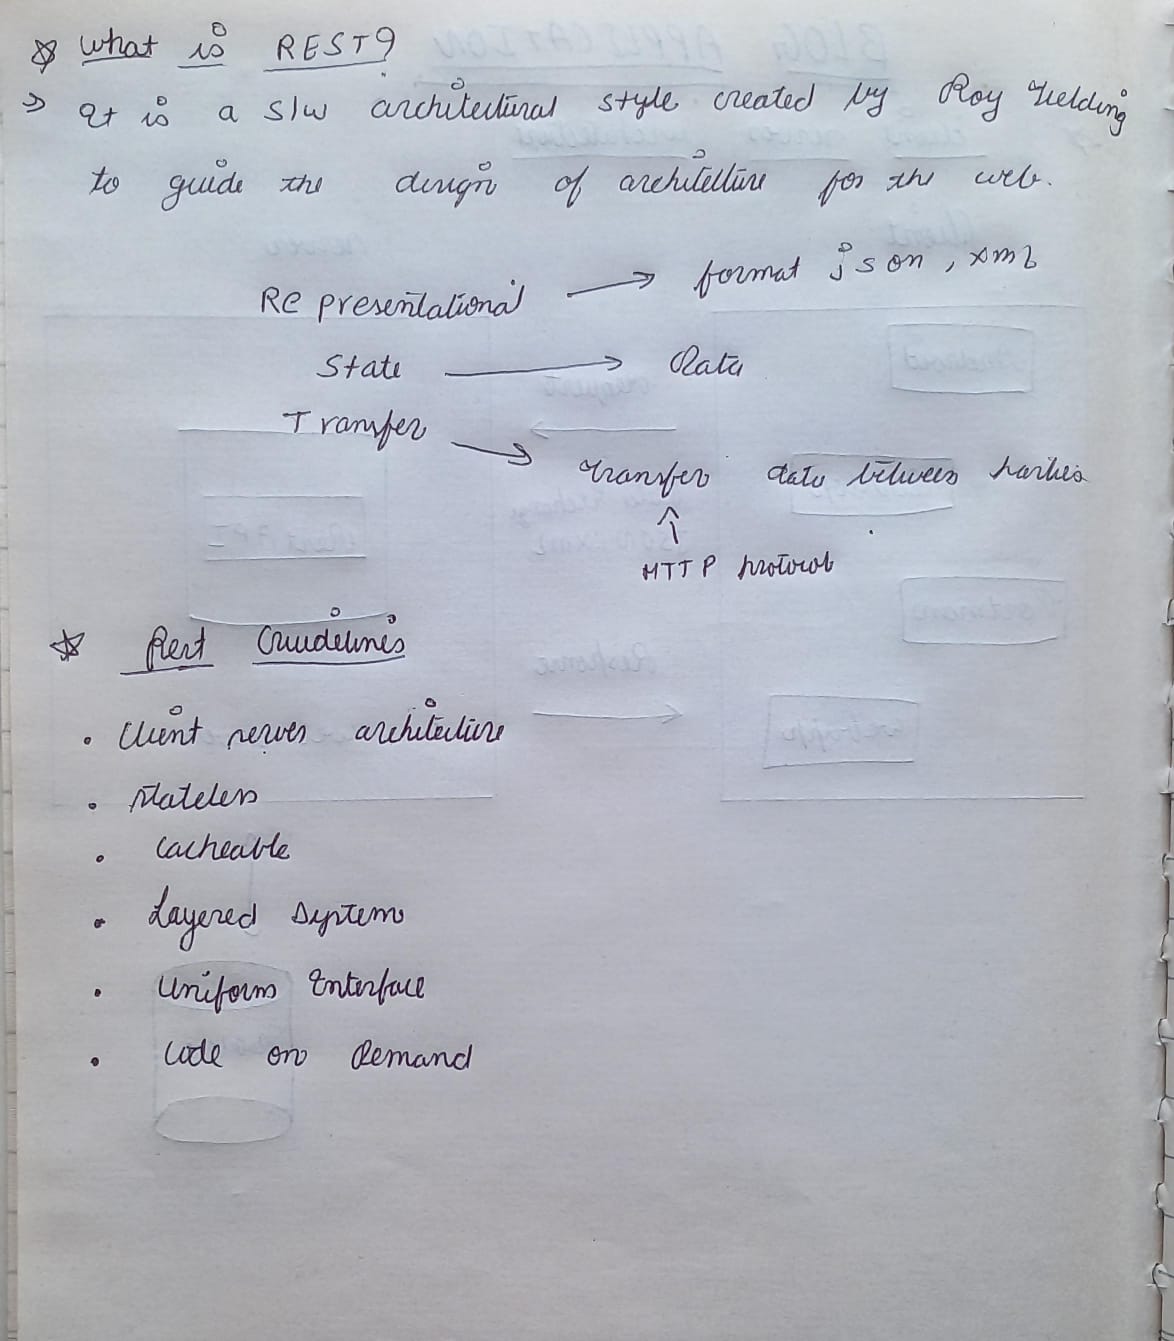 ☆ What is REST?
→ It is a S/w architectural style created by Roy Fielding
to guide the design of architecture for the web.
REpresentational → format json, xml
State → Data
Transfer → transfer data between parties
↑
HTTP protocol
☆ Rest Guidelines
• Client server architecture
• Stateless
• Cacheable
• Layered System
• Uniform Interface
• Code on Demand